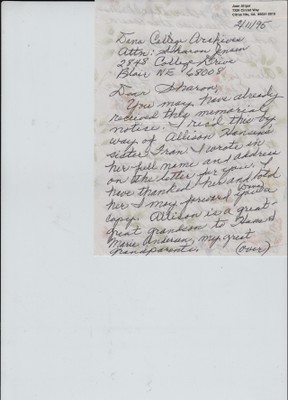 Jean
2/11/95
Dana College Archives
Attn: Sharon Jensen
2848 College Drive
Blair NE 68008
Dear Sharon,
You may have already
received this memorial
notice. I rec'd this by
way of Allison Hansen's
sister Fran. I wrote in
her full name and address
on the letter for you. I
have thanked her and told
her I may forward you a
Dana
copy. Allison is a great-
great grandson to Hans &
Marie Andersen, my great
grandparents. (over)